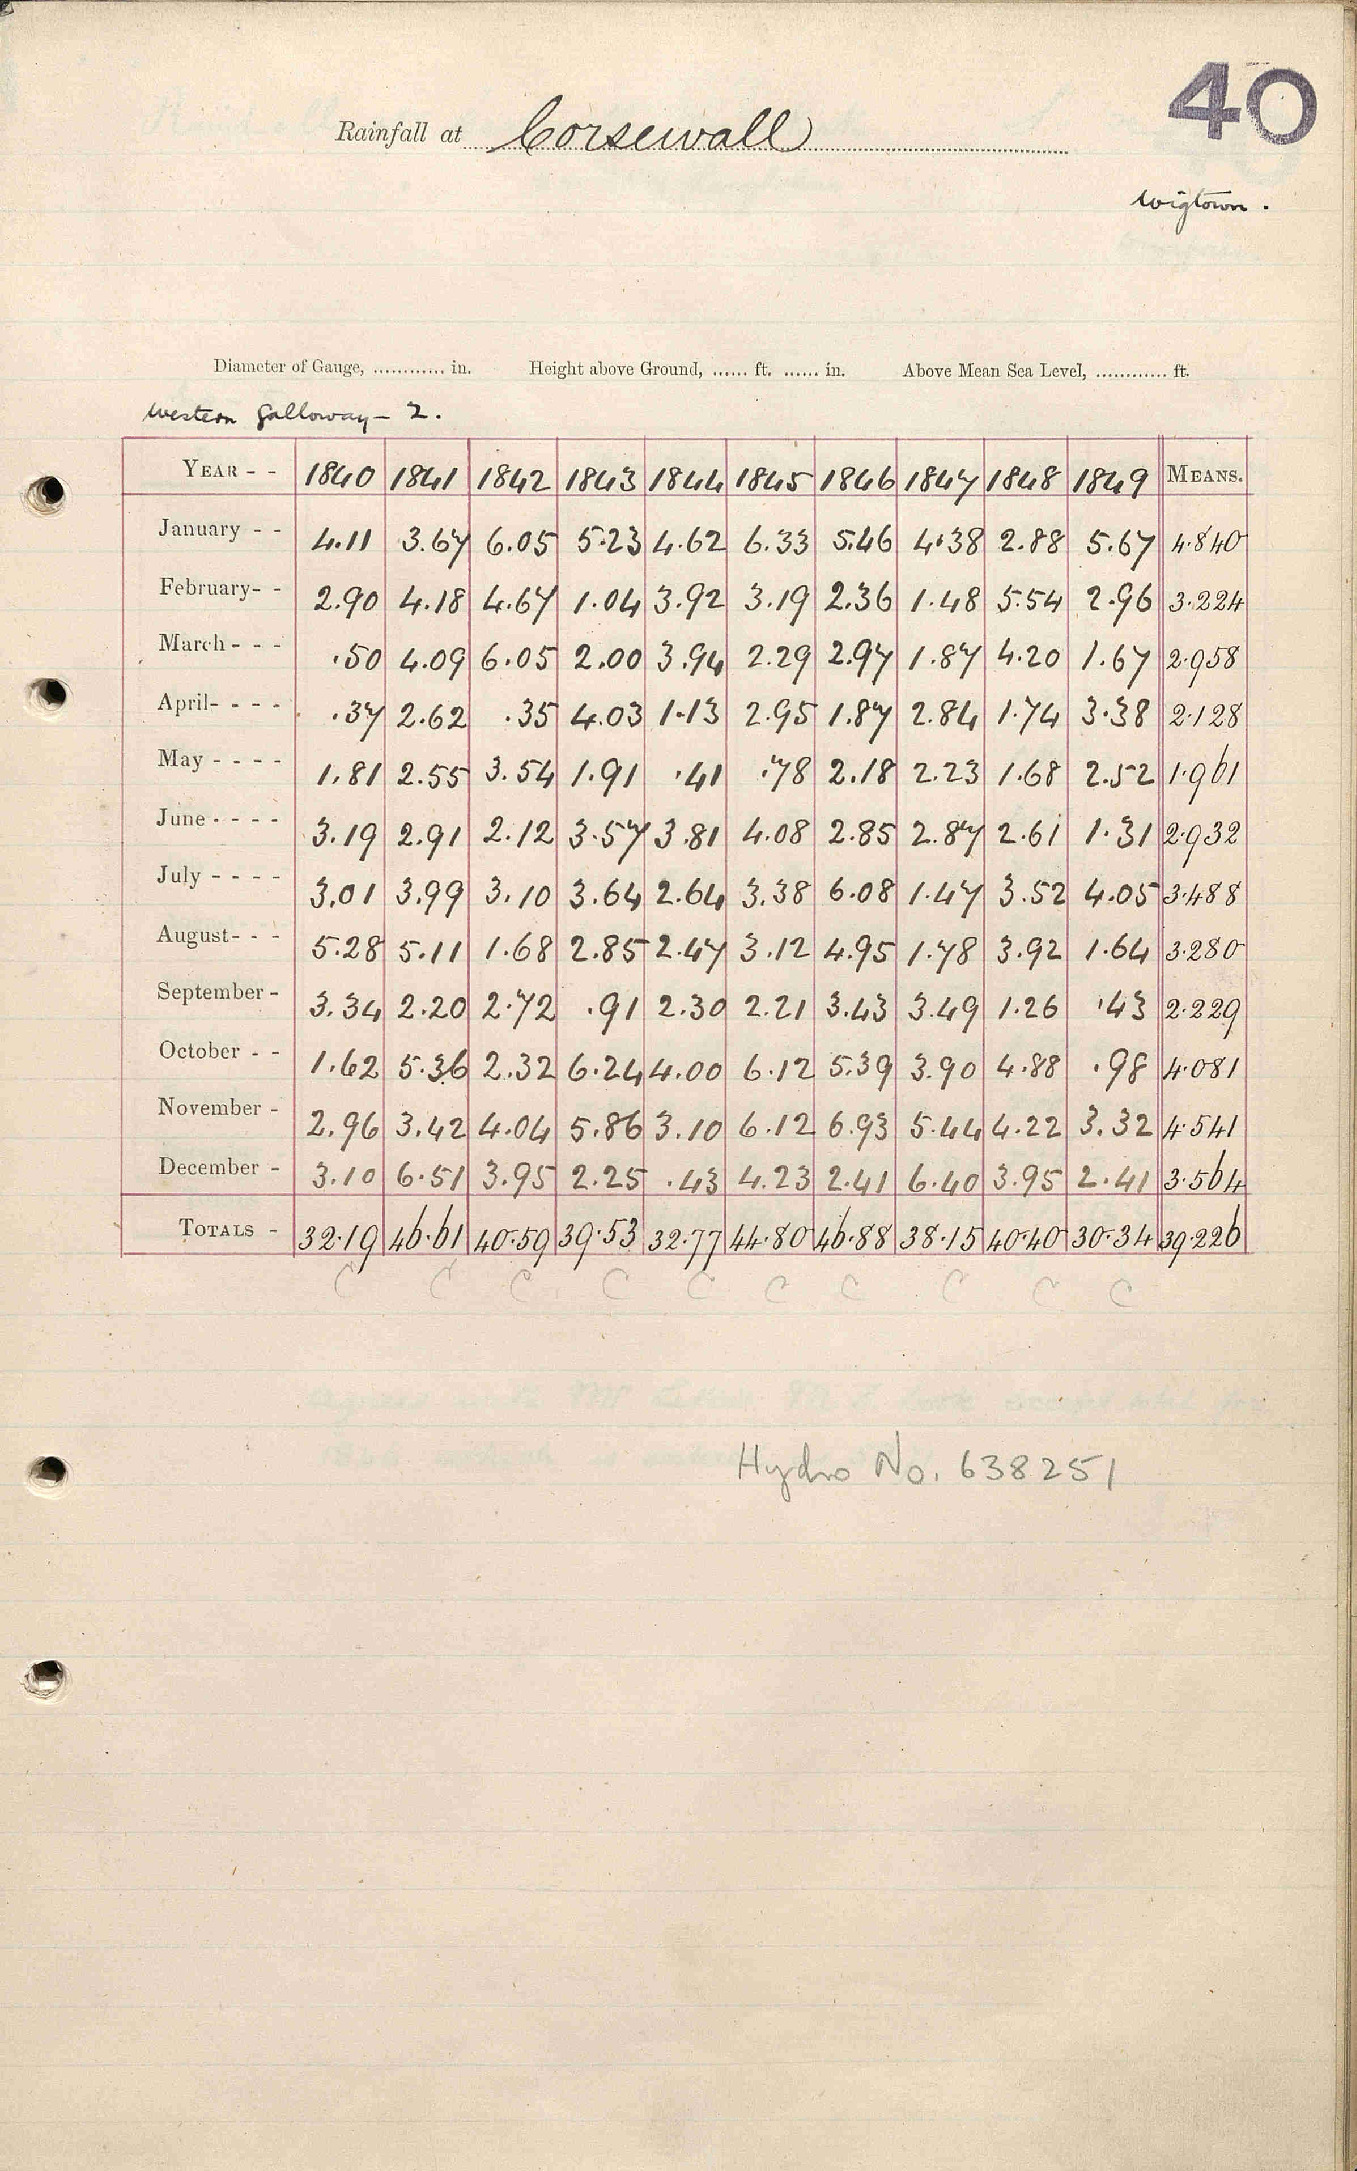 40
Rainfall at Corsewall
Wigtown.
Diameter of Gauge, ............ in. Height above Ground, ...... ft. ...... in. Above Mean Sea Level, ............ ft.
Western Galloway - 2.
YEAR - - 1840 1841 1842 1843 1844 1845 1846 1847 1848 1849 MEANS.
January - - 4.11 3.67 6.05 5.23 4.62 6.33 5.46 4.38 2.88 5.67 4.840
February - - 2.90 4.18 4.67 1.04 3.92 3.19 2.36 1.48 5.54 2.96 3.224
March - - - .50 4.09 6.05 2.00 3.94 2.29 2.97 1.87 4.20 1.67 2.958
April - - - - .37 2.62 .35 4.03 1.13 2.95 1.87 2.84 1.74 3.38 2.128
May - - - - 1.81 2.55 3.54 1.91 .41 .78 2.18 2.23 1.68 2.52 1.961
June - - - - 3.19 2.91 2.12 3.57 3.81 4.08 2.85 2.87 2.61 1.31 2.932
July - - - - 3.01 3.99 3.10 3.64 2.64 3.38 6.08 1.47 3.52 4.05 3.488
August - - - 5.28 5.11 1.68 2.85 2.47 3.12 4.95 1.78 3.92 1.64 3.280
September - 3.34 2.20 2.72 .91 2.30 2.21 3.43 3.49 1.26 .43 2.229
October - - 1.62 5.36 2.32 6.24 4.00 6.12 5.39 3.90 4.88 .98 4.081
November - 2.96 3.42 4.04 5.86 3.10 6.12 6.93 5.44 4.22 3.32 4.541
December - 3.10 6.51 3.95 2.25 .43 4.23 2.41 6.40 3.95 2.41 3.564
TOTALS - 32.19 46.61 40.59 39.53 32.77 44.80 46.88 38.15 40.40 30.34 39.226
C C C C C C C C C C
Hydro No. 638251